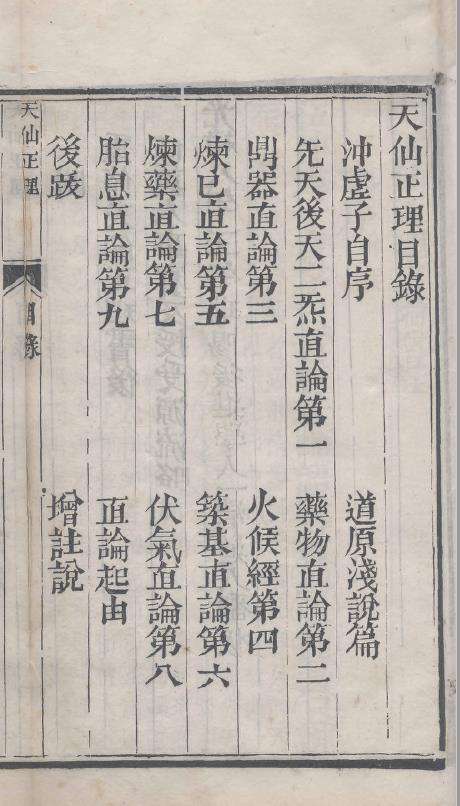 天仙正理目錄
沖虛子自序
道原淺說篇
先天後天二炁直論第一
藥物直論第二
鼎器直論第三
火候經第四
煉已直論第五
築基直論第六
煉藥直論第七
伏氣直論第八
胎息直論第九
直論起由
後跋
增註說
天仙正理
目錄